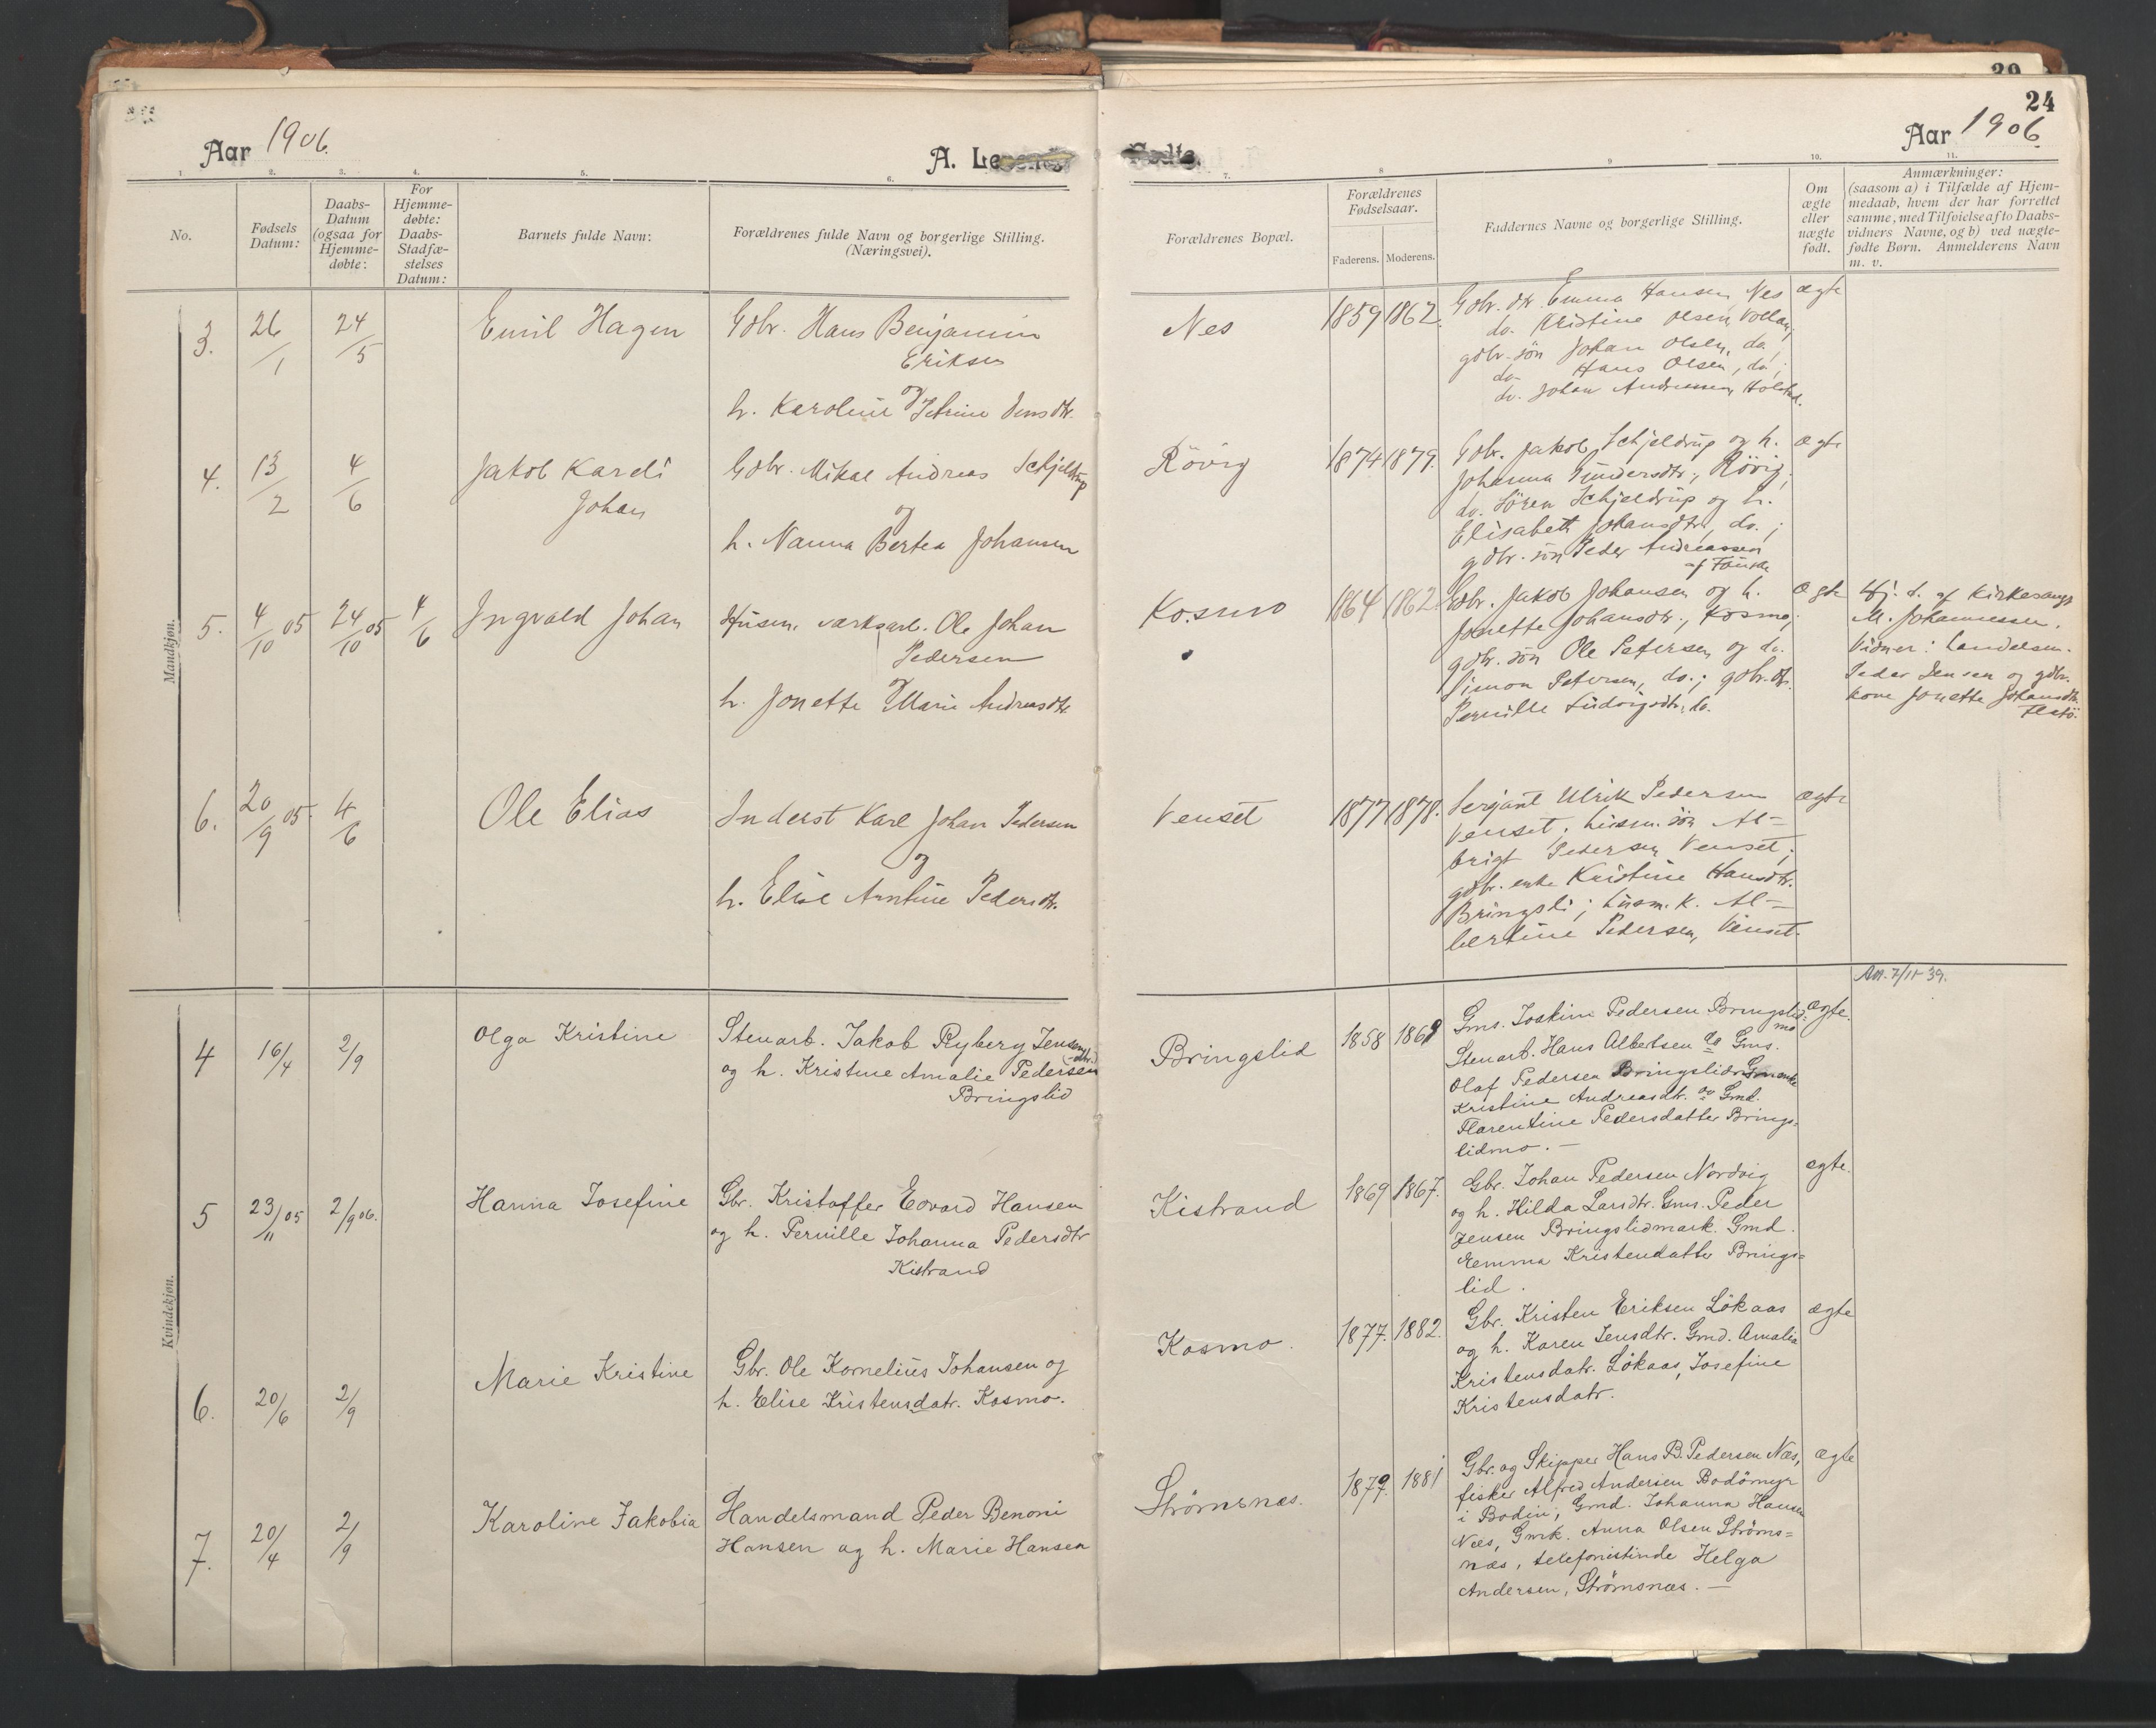 24
Aar 1906.
A. Levende
Fødte.
Aar 1906.
1.
2.
3.
4.
5.
6.
7.
8
9
10.
11.
No.
Fødsels
Datum:
Daabs-
Datum
(ogsaa for
Hjemme-
døbte:
For
Hjemme-
døbte:
Daabs-
Stadfæ-
stelses
Datum:
Barnets fulde Navn:
Forældrenes fulde Navn og borgerlige Stilling.
(Næringsvei).
Forældrenes Bopæl.
Forældrenes
Fødselsaar.
Faderens.
Moderens.
Faddernes Navne og borgerlige Stilling.
Om
ægte
eller
uægte
født.
Anmærkninger:
(saasom a) i Tilfælde af Hjem-
medaab, hvem der har forrettet
samme, med Tilføielse af to Daabs-
vidners Navne, og b) ved uægte-
fødte Børn. Anmelderens Navn
m. v.
Mandkjøn.
3.
26/1
24/5
Emil Hagen
Gdbr. Hans Benjamin
Eriksen
og
h. Karoline Petrine Jensdtr.
Nes
1859
1862.
Gdbr. dtr. Emma Hansen, Nes
do. Kristine Olsen, Vollan;
gdbr. søn Johan Olsen, do;
do. Hans Olsen, do;
do. Johan Andreassen, Holstad.
ægte
4.
13/2
4/6
Jakob Kardi
Johan
Gdbr. Mikal Andreas Schjeldrup
og
h. Nanna Bertea Johansen
Røvig
1874
1879.
Gdbr. Jakob Schjeldrup og h.
Johanna Gundersdtr., Røvig;
do. Søren Schjeldrup og h.
Elisabeth Johansdtr., do.;
gdbr. søn Peder Andreassen
af Fauske
ægte
5.
4/10 05
24/10 05
4/6
Ingvald Johan
Husm. værksarb. Ole Johan
Pedersen
og
h. Jonette Marie Andreasdtr.
Kosmo
1864
1862.
Gdbr. Jakob Johansen og h.
Jonette Johansdtr., Kosmo;
gdbr. søn Ole Petersen og do.
Simon Petersen, do.; gdbr. dtr.
Pernille Ludvigsdtr., do.
ægte
Hj. d. af Kirkesanger
M. Johannessen.
Vidner: Landelsm.
Peder Jensen og gdbr.
kone Jonette Johansdtr.
6.
20/9 05.
4/6
Ole Elias
Inderst Karl Johan Pedersen
og
h. Elise Arntine Pedersdtr.
Venset
1877
1878.
Sergiant Ulrik Pedersen
Venset; husm. søn Al-
brigt Pedersen Venset;
gdbr. enke Kristine Hansdtr.
Bringsli; husm. k. Al-
bertine Pedersen, Venset.
ægte
7/11-39.
Kvindekjøn.
4
16/4
2/9
Olga Kristine
Stenarb. Jakob Ryberg Jensen
og h. Kristine Amalie Pedersen
Bringslid
Bringslid
1858
1869
Gms. Joskim Pedersen Bringslid-
mo
Stenarb. Hans Albertsen do Gms.
Olaf Pedersen Bringslidmo Gmenke
Kristine Andreasdtr. og Gmd.
Florentine Pedersdatter Brings-
lidmo. —
ægte.
5
23/11 05
2/9 06.
Hanna Josefine
Gbr. Kristoffer Edvard Hansen
og h. Pernille Johanna Pedersdtr
Kistrand
Kistrand
1869
1867.
Gbr. Johan Pedersen Nordvig
og h. Hilda Larsdtr. Gms. Peder
Jensen Bringslidmark. Gmd.
Emma Kristendatter Brings-
lid.
ægte.
6.
20/6
2/9
Marie Kristine
Gbr. Ole Kornelius Johansen og
h. Elise Kristensdatr. Kosmo.
Kosmo.
1877.
1882.
Gbr. Kristen Eriksen Løkaas
og h. Karen Jensdtr. Gmd. Amalia
Kristensdatr. Løkaas, Josefine
Kristensdatr.
ægte
7.
20/4
2/9
Karoline Jakobia
Handelsmand Peder Benoni
Hansen og h. Marie Hansen
Strømsnæs.
1879.
1881
Gbr. og Skipper Hans B. Pedersen Næs,
fisker Alfred Andersen Bodømyr
i Bodin, Gmd. Johanna Hansen
Næs, Gmk. Anna Olsen Strøms-
næs, telefonistinde Helga
Andersen, Strømsnæs. —
ægte